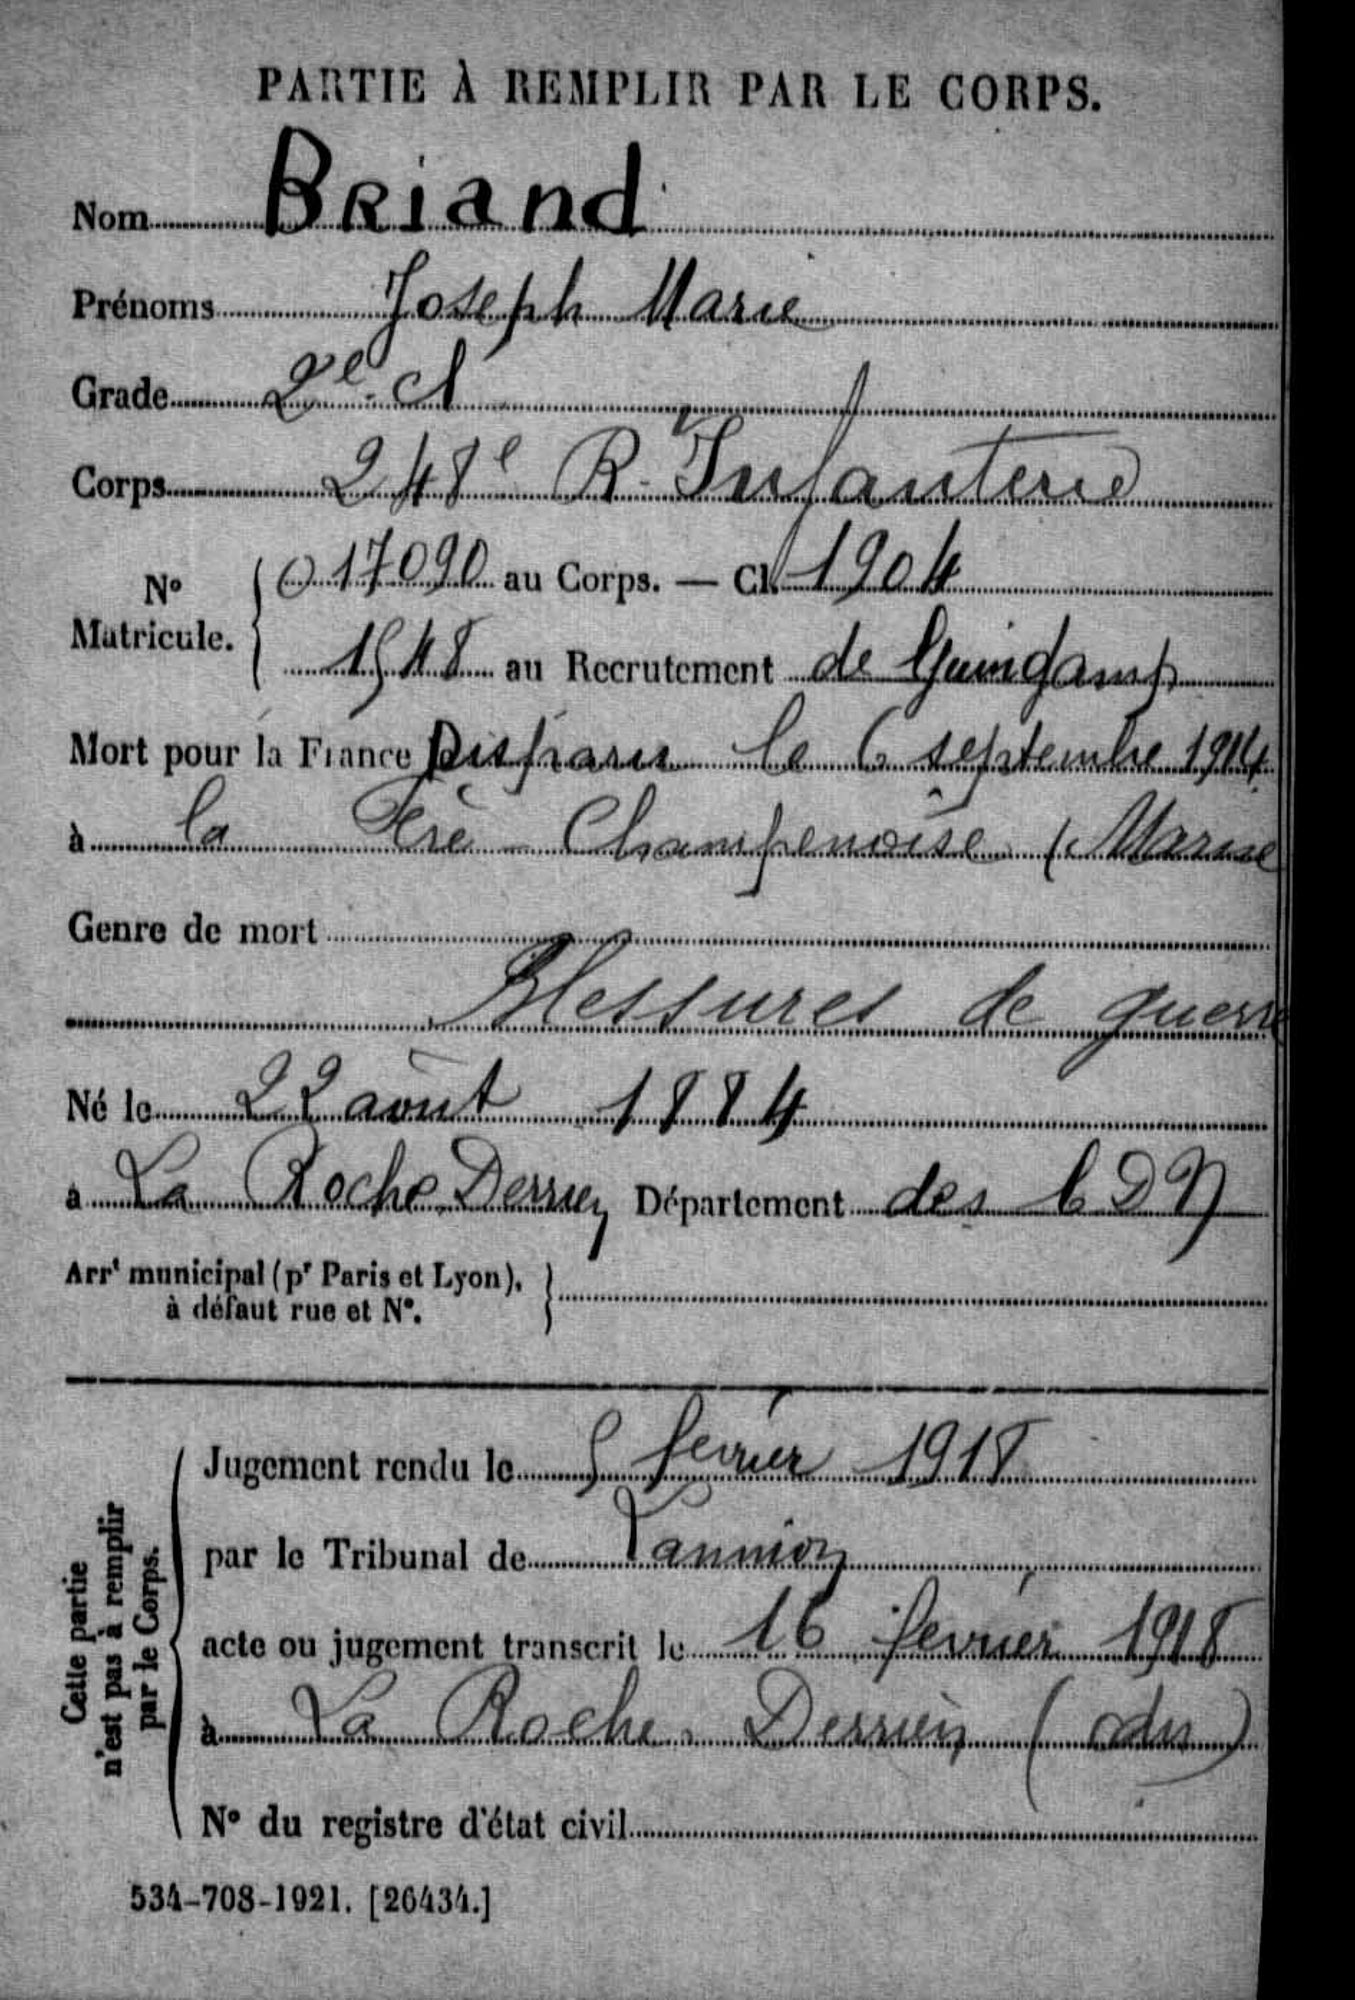 PARTIE À REMPLIR PAR LE CORPS.
Nom Briand
Prénoms Joseph Marie
Grade 2e cl
Corps 248e R. Infanterie
No Matricule. 017090 au Corps. — Cl. 1904
1548 au Recrutement de Guingamp
Mort pour la France Disparu le 6 septembre 1914
à la Fère Champenoise (Marne
Genre de mort
Blessures de guerre
Né le 22 août 1884
à La Roche Derrien Département des CDN
Arrt municipal (pr Paris et Lyon),
à défaut rue et No.
Cette partie
n'est pas à remplir
par le Corps.
Jugement rendu le 5 février 1918
par le Tribunal de Lannion
acte ou jugement transcrit le 16 février 1918
à La Roche Derrien (cdn)
No du registre d'état civil
534-708-1921. [26434.]